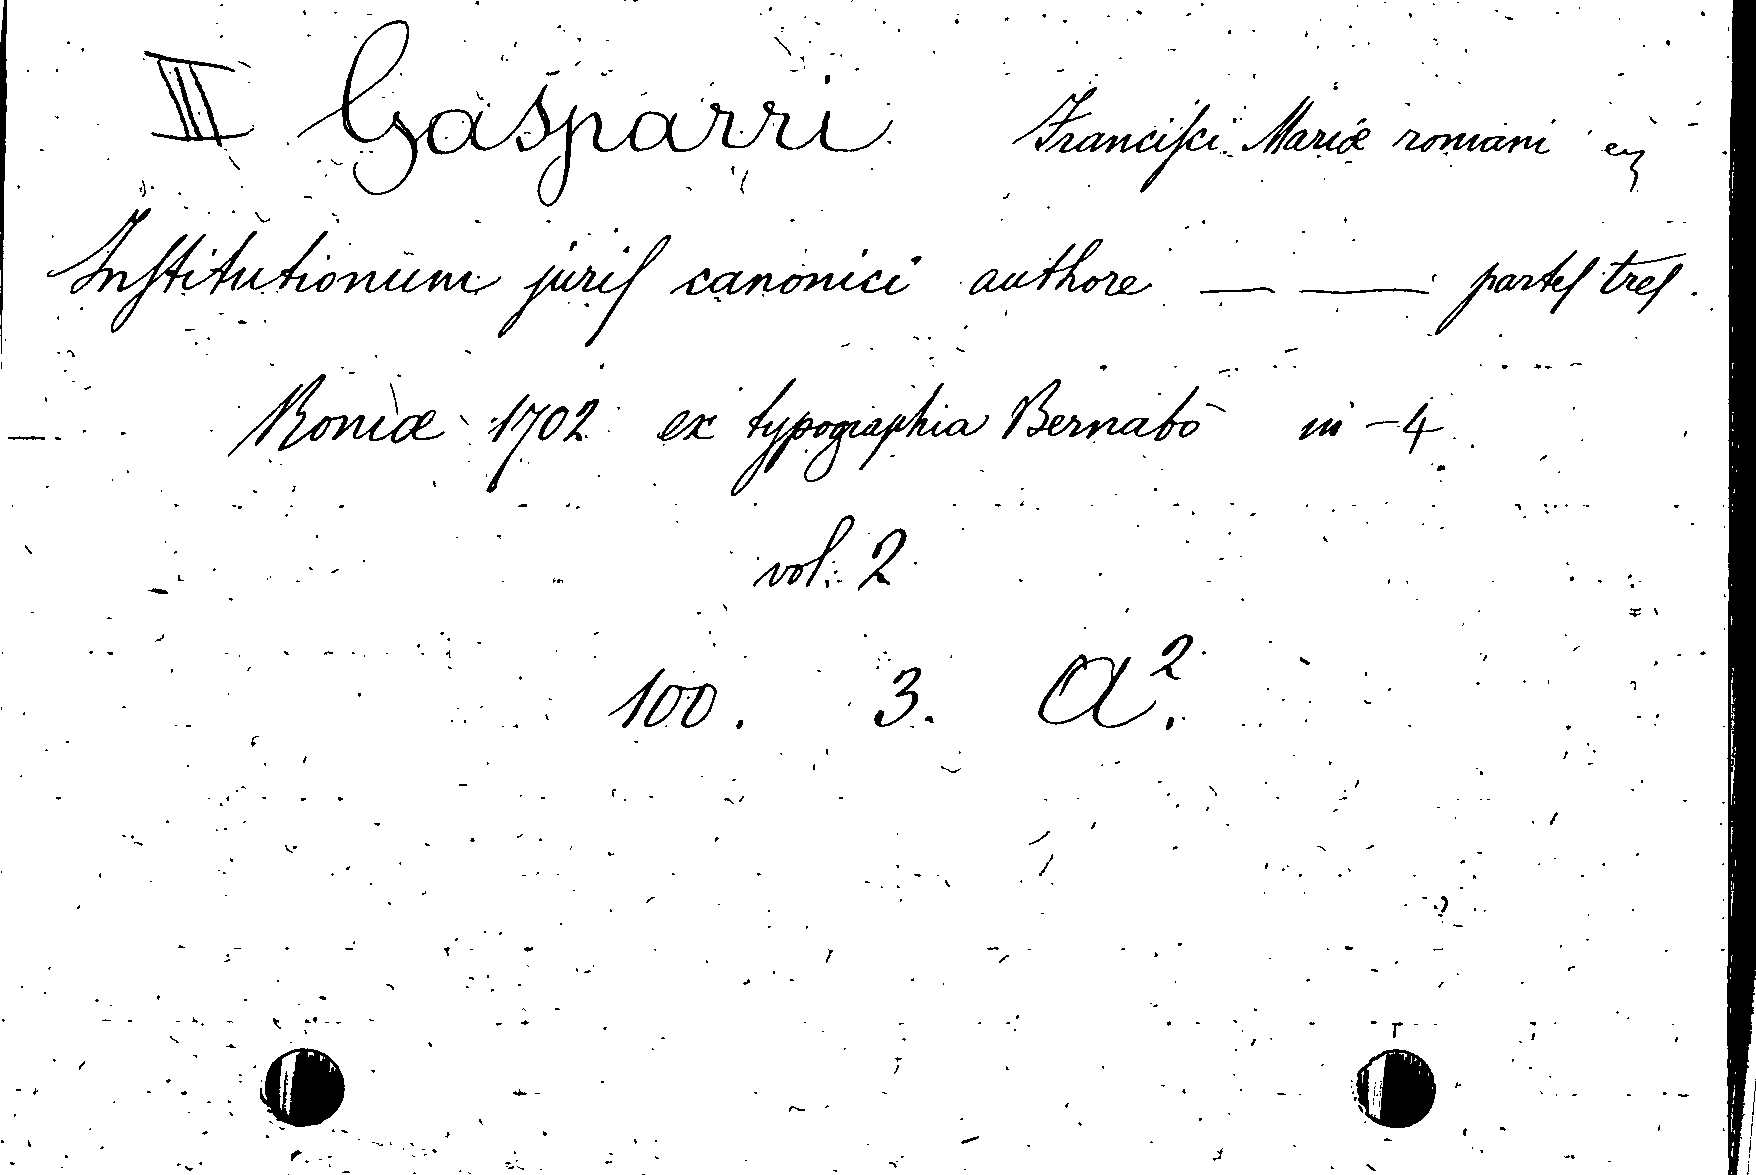 III Gasparri Franciſci Mariæ romani
Inſtitutionum juriſ canonici authore — — parteſ treſ.
Romæ 1702 ex typographia Bernabò in-4
vol. 2
100. 3. A².